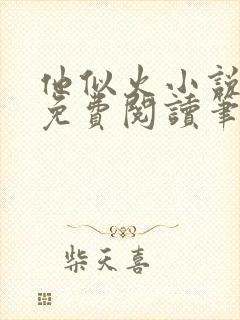 他似火小說
免費閱讀筆
柴天喜